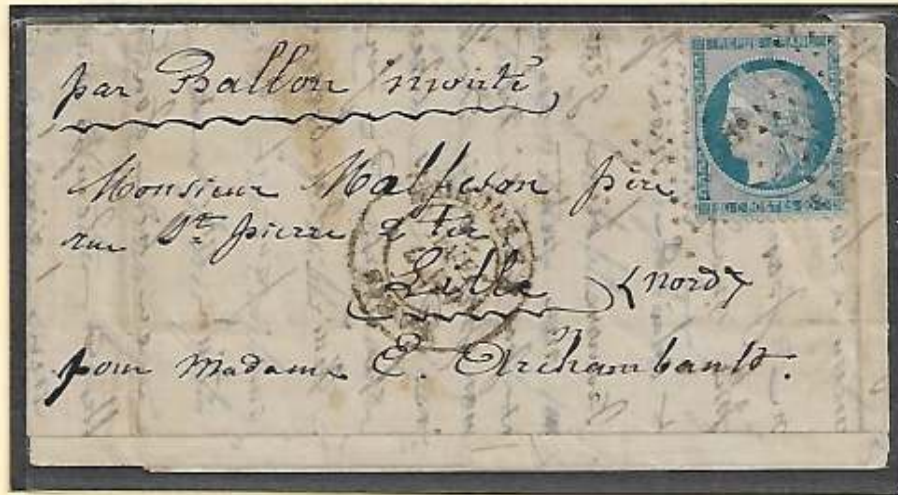 par Ballon monté
Monsieur Malfeson père
rue St. pierre
Lille (Nord)
pour Madame E. Archambault.